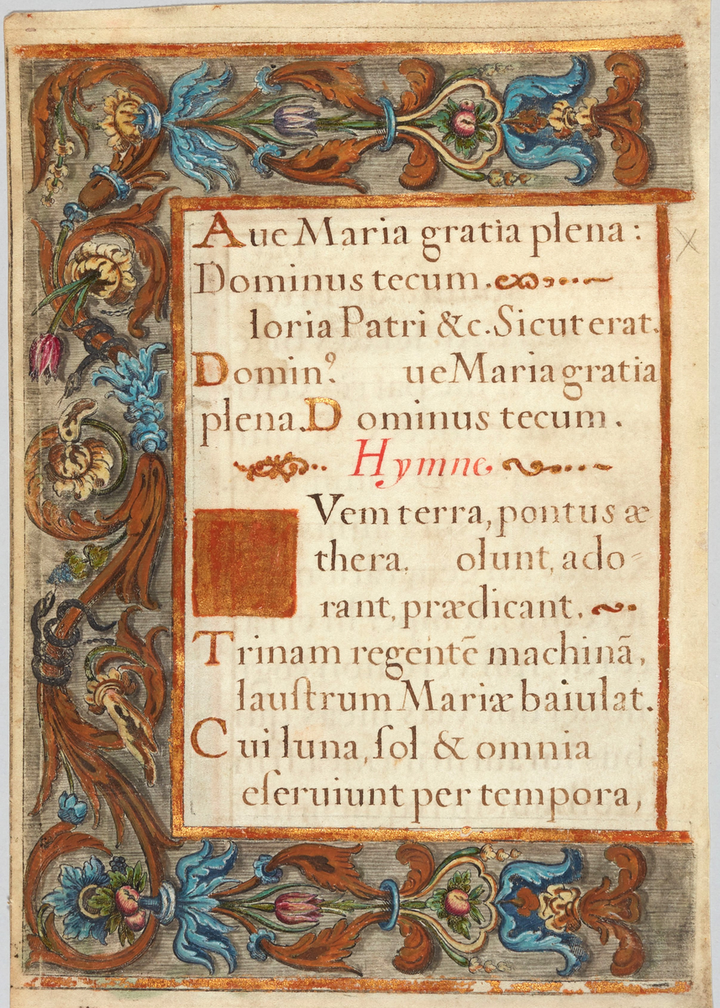 Aue Maria gratia plena :
Dominus tecum.
loria Patri &c. Sicut erat.
Domin⁹ ue Maria gratia
plena. Dominus tecum.
Hymne
Vem terra, pontus æ
thera. olunt, ado-
rant, prædicant.
Trinam regentē machinã,
lauſtrum Mariæ baiulat.
Cui luna, ſol & omnia
eſeruiunt per tempora,